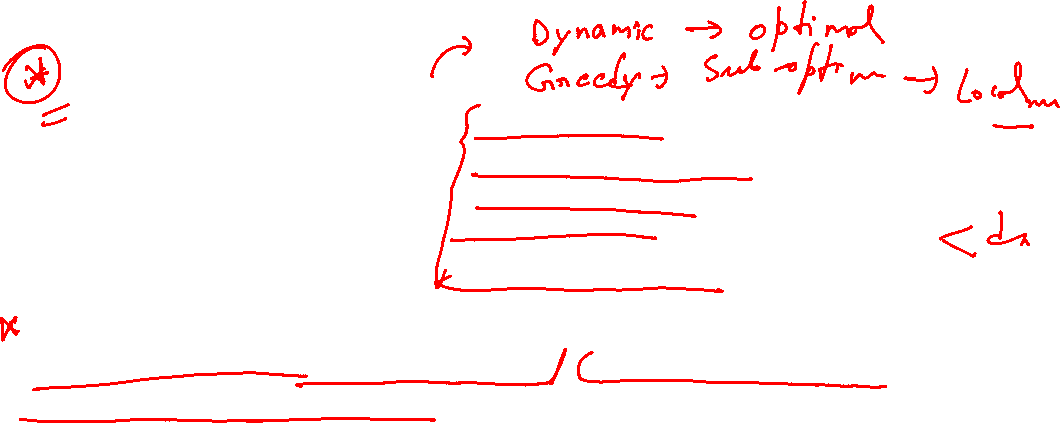 Dynamic → optimal
Greedy → Sub optim → Local
< dx